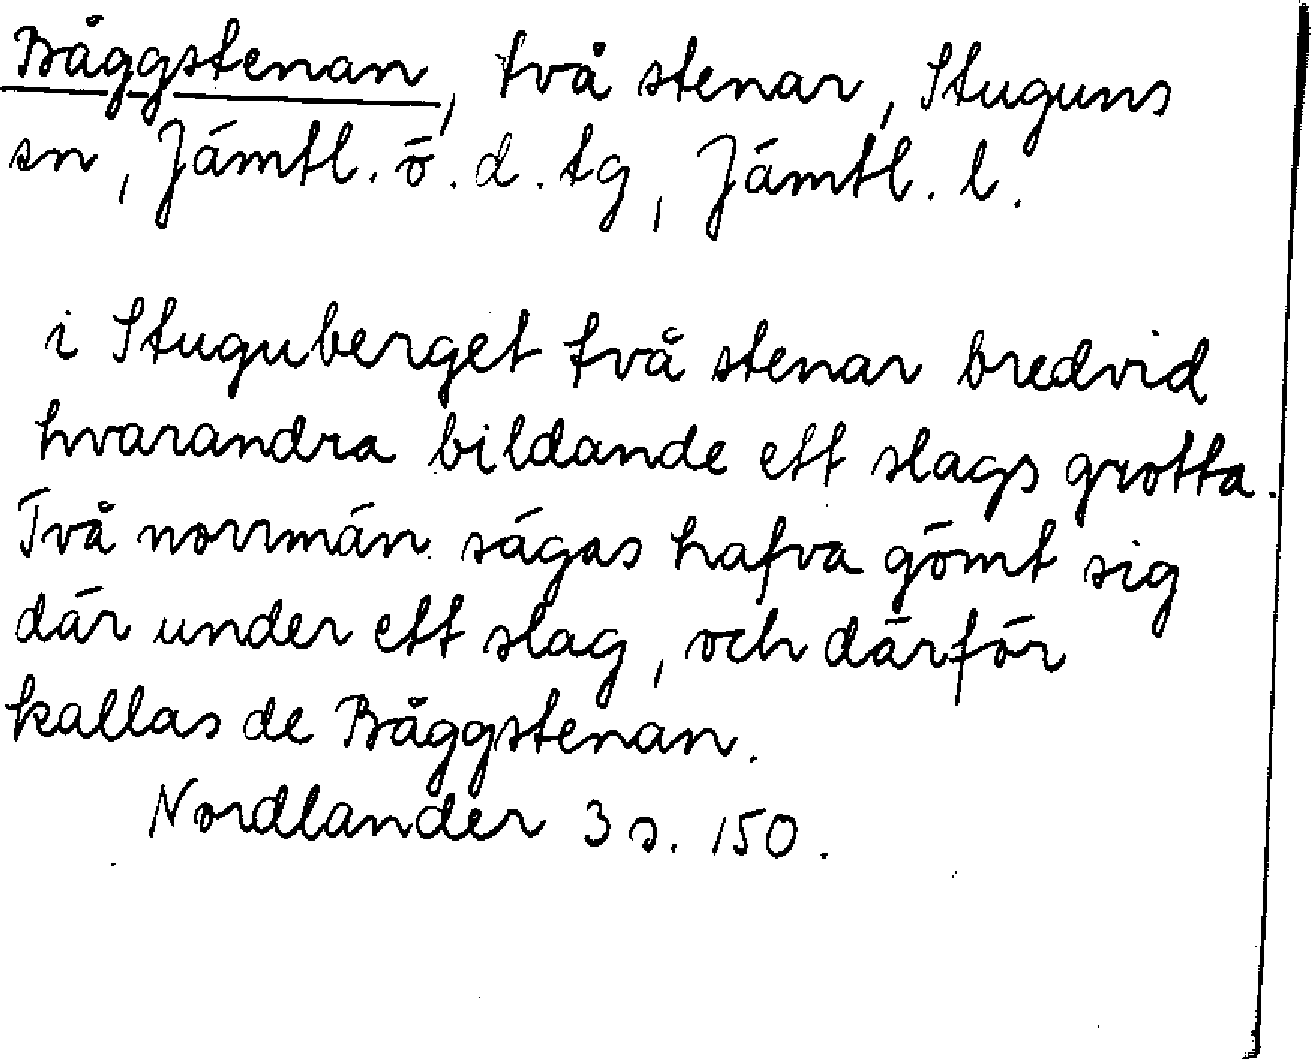 Båggstenan, två stenar, Stuguns
sn, Jämtl. ö. d. tg, Jämtl. l.
i Stuguberget två stenar bredvid
hvarandra bildande ett slags grotta.
Två norrmän sägas hafva gömt sig
där under ett slag, och därför
kallas de Båggstenan.
Nordlander 3 s. 150.